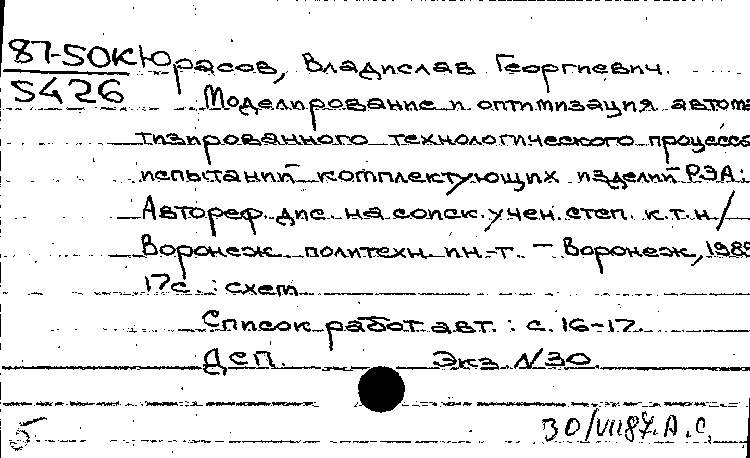 87-50К Юрасов, Владислав Георгиевич.
5426 Моделирование и оптимизация автома
тизированного технологического процесса
испытаний комплектующих изделий РЭА:
Автореф. дис. на соиск. учен. степ. к.т.н/
Воронеж. политехн. ин-т. – Воронеж, 198
17с. : схем
Список работ авт. : с. 16-17.
ДСП. Экз N30
5 30/VII87. А.С.